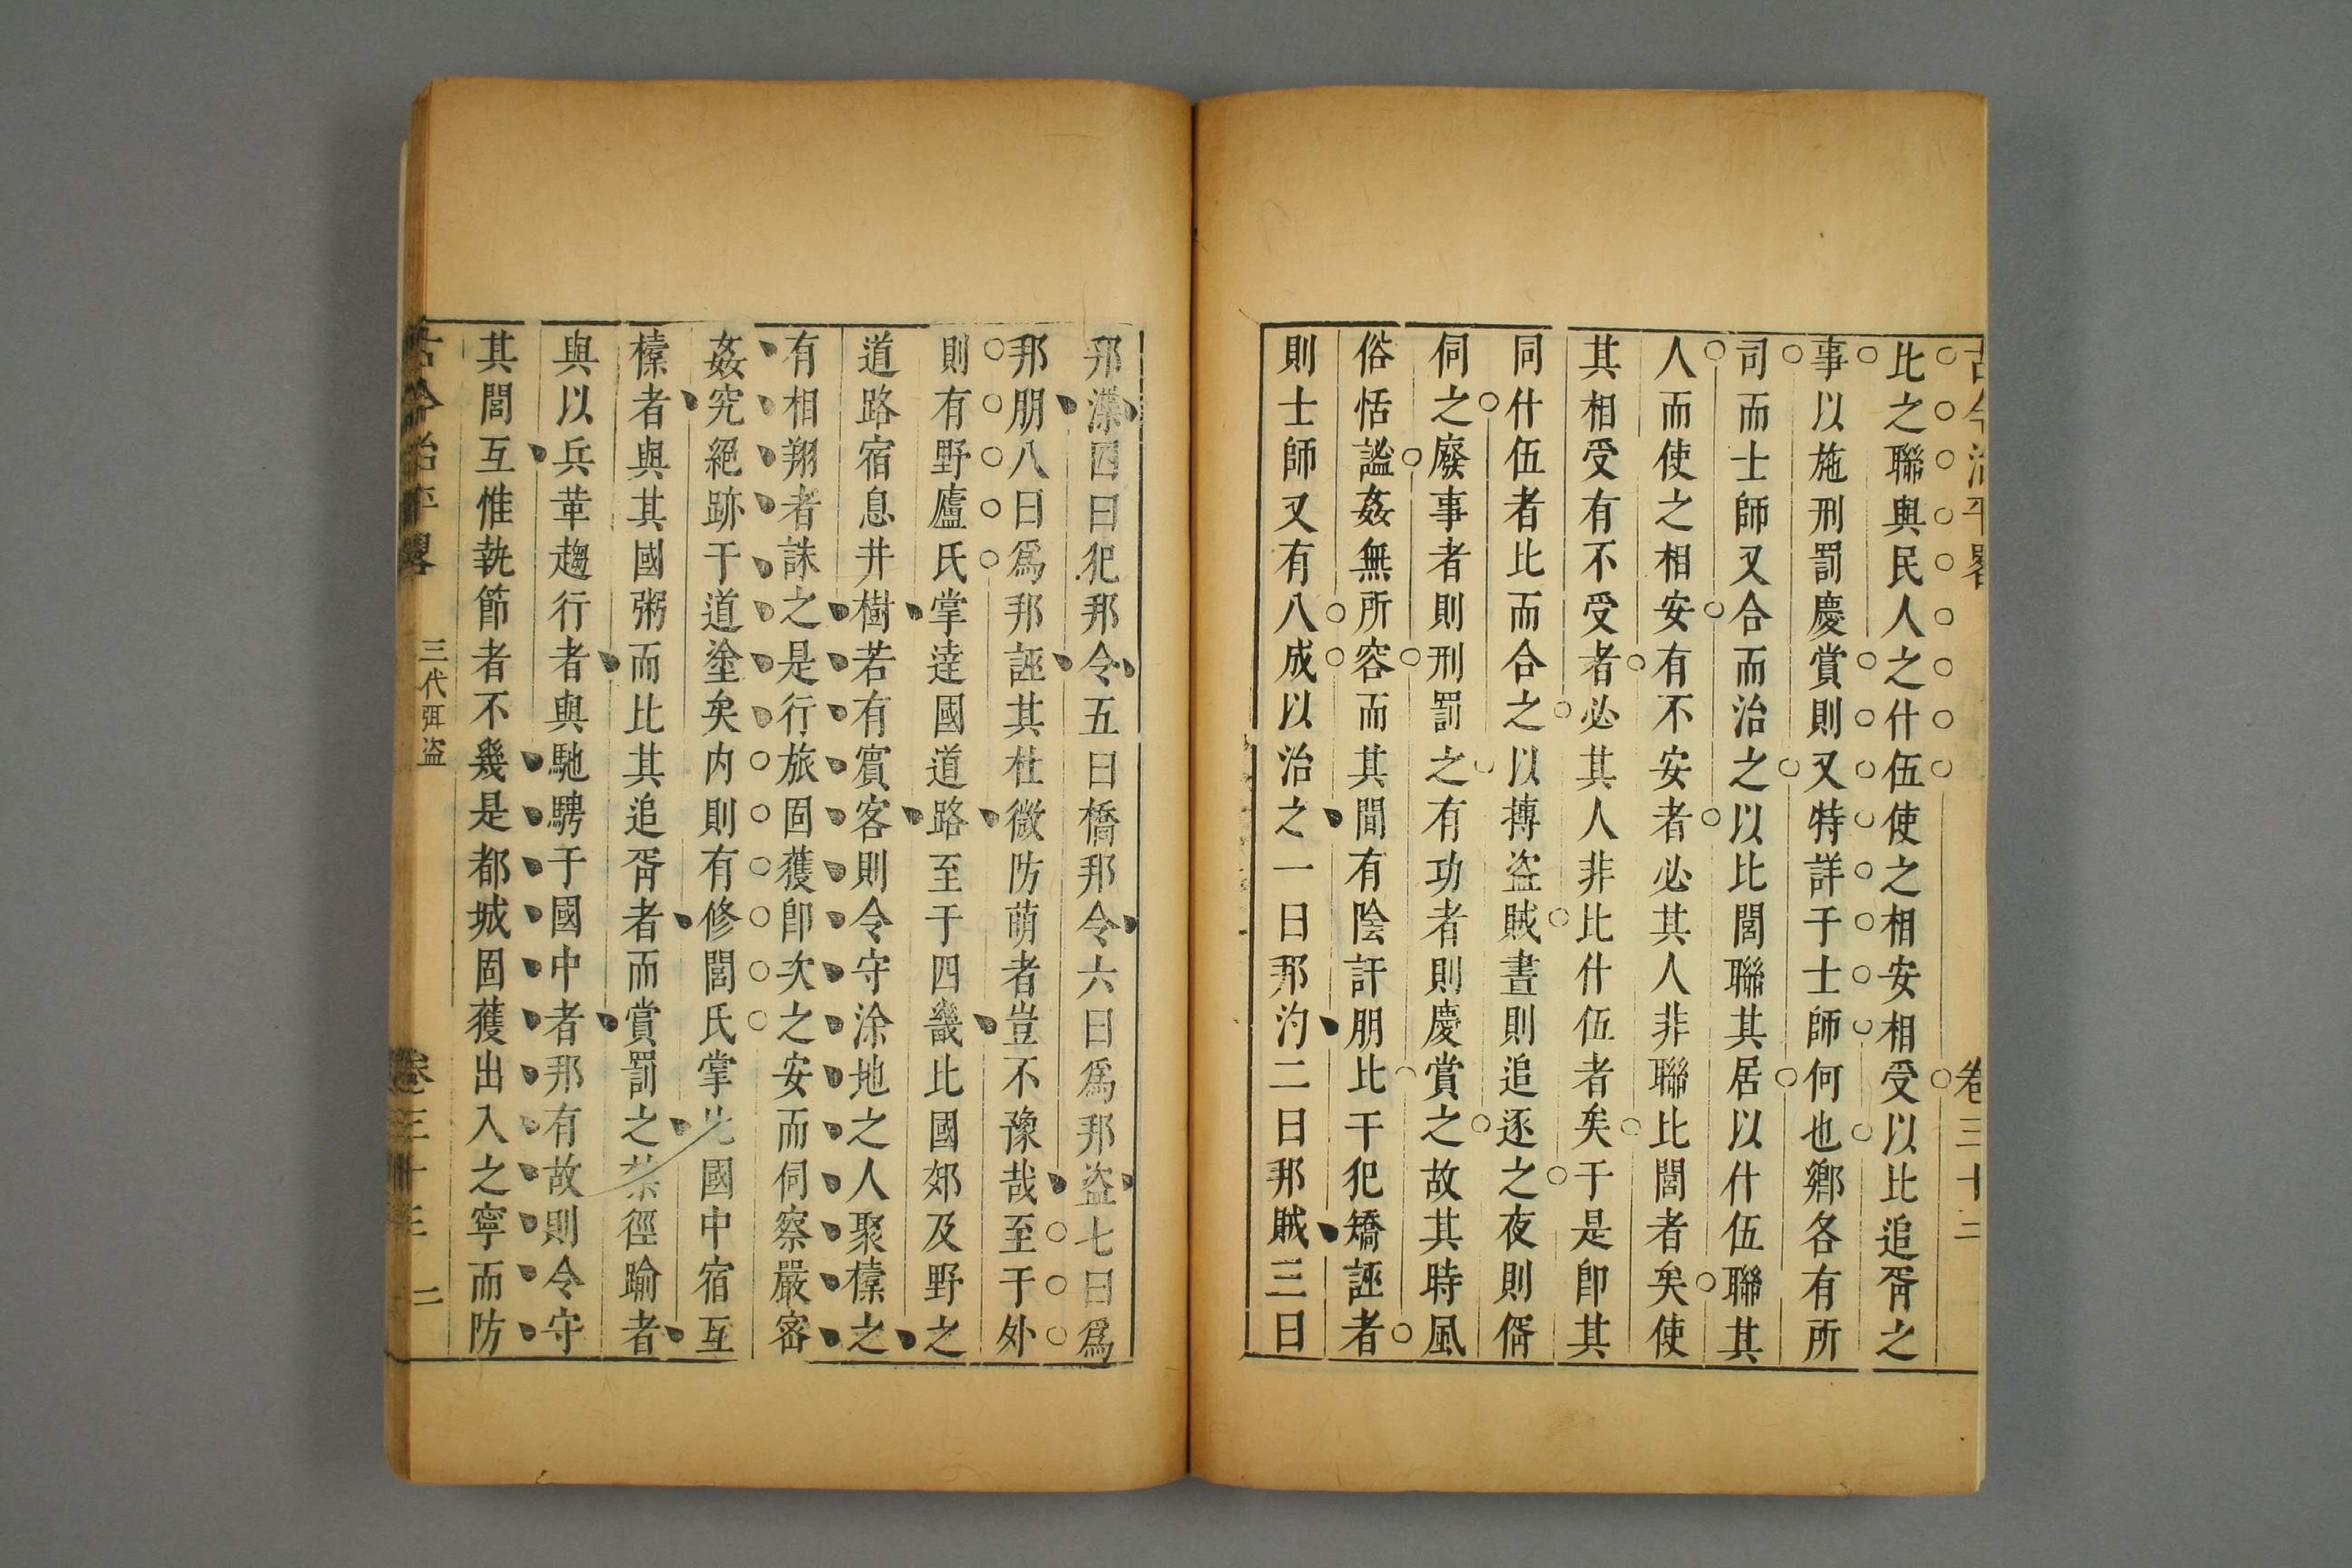 古今治平畧 卷三十三
比之聯與民人之什伍使之相安相受以比追胥之
事以施刑罰慶賞則又特詳于士師何也鄉各有所
司而士師又合而治之以比閭聯其居以什伍聯其
人而使之相安有不安者必其人非聯比閭者矣使
其相受有不受者必其人非比什伍者矣于是卽其
同什伍者比而合之以摶盜賊晝則追逐之夜則偦
伺之廢事者則刑罰之有功者則慶賞之故其時風
俗恬謐姦無所容而其間有陰訐朋比干犯矯誣者
則士師又有八成以治之一曰邦汋二曰邦賊三曰
邦諜四曰犯邦令五曰橋邦令六曰爲邦盜七曰爲
邦朋八曰爲邦誣其杜微防萌者豈不豫哉至于外
則有野廬氏掌達國道路至于四畿比國郊及野之
道路宿息井樹若有賓客則令守涂地之人聚㯿之
有相翔者誅之是行旅固獲卽次之安而伺察嚴密
姦宄絕跡于道塗矣内則有修閭氏掌比國中宿互
㯿者與其國粥而比其追胥者而賞罰之禁徑踰者
與以兵革趨行者與馳騁于國中者邦有故則令守
其閭互惟執節者不幾是都城固獲出入之寧而防
古今治平畧 三代弭盜 卷三十三 二